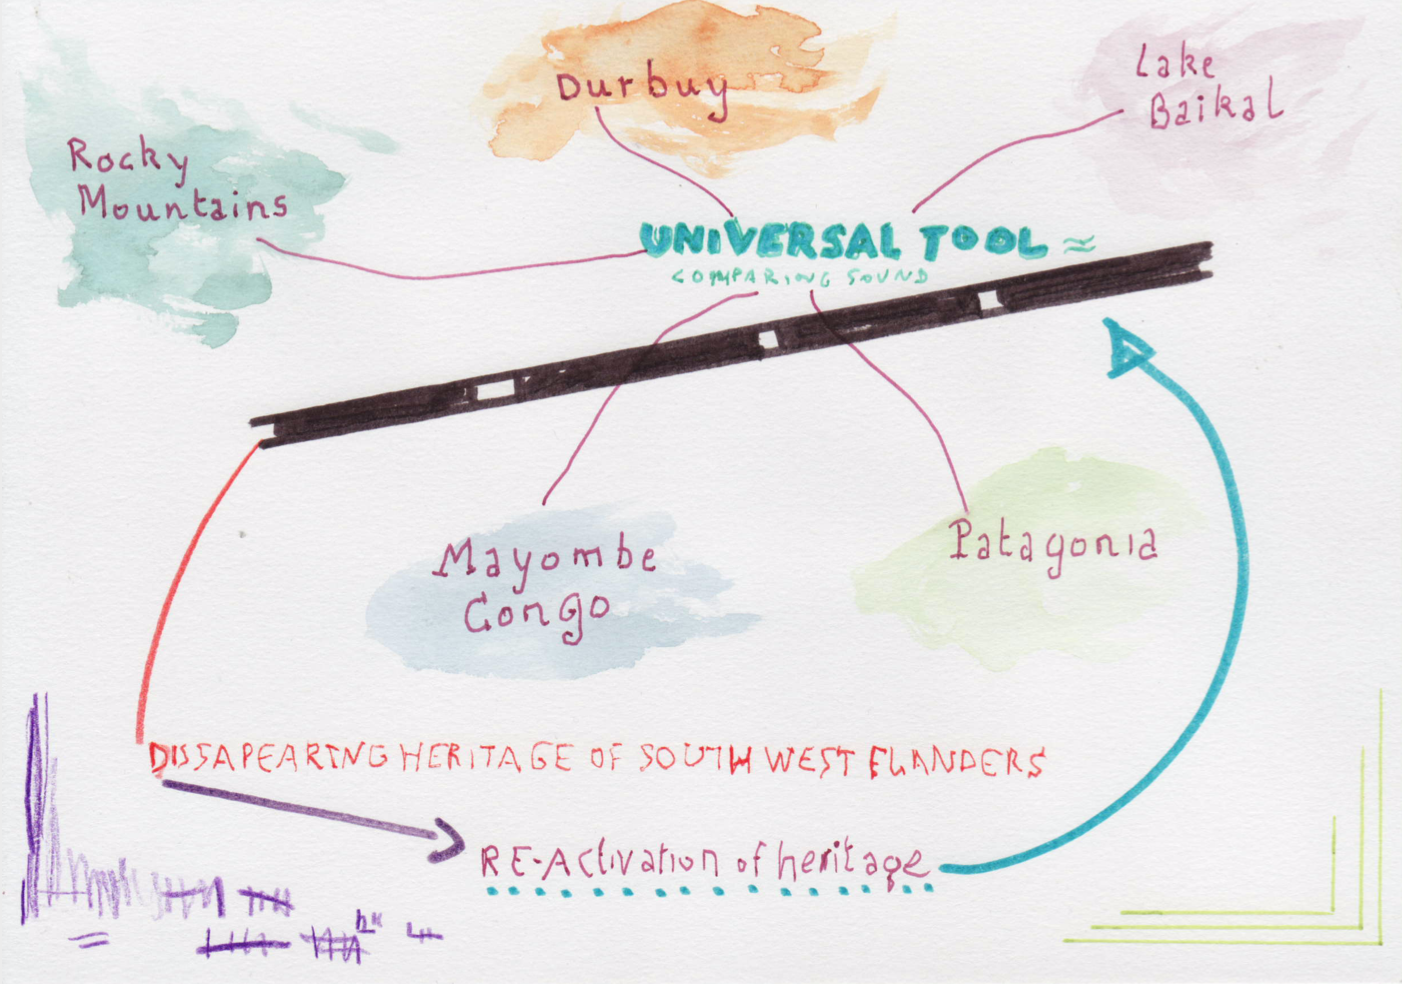 Durbuy
Lake
Baikal
Rocky
Mountains
UNIVERSAL TOOL ≈
COMPARING SOUND
Mayombe
Congo
Patagonia
DISSAPEARING HERITAGE OF SOUTH WEST FLANDERS
RE-Activation of heritage